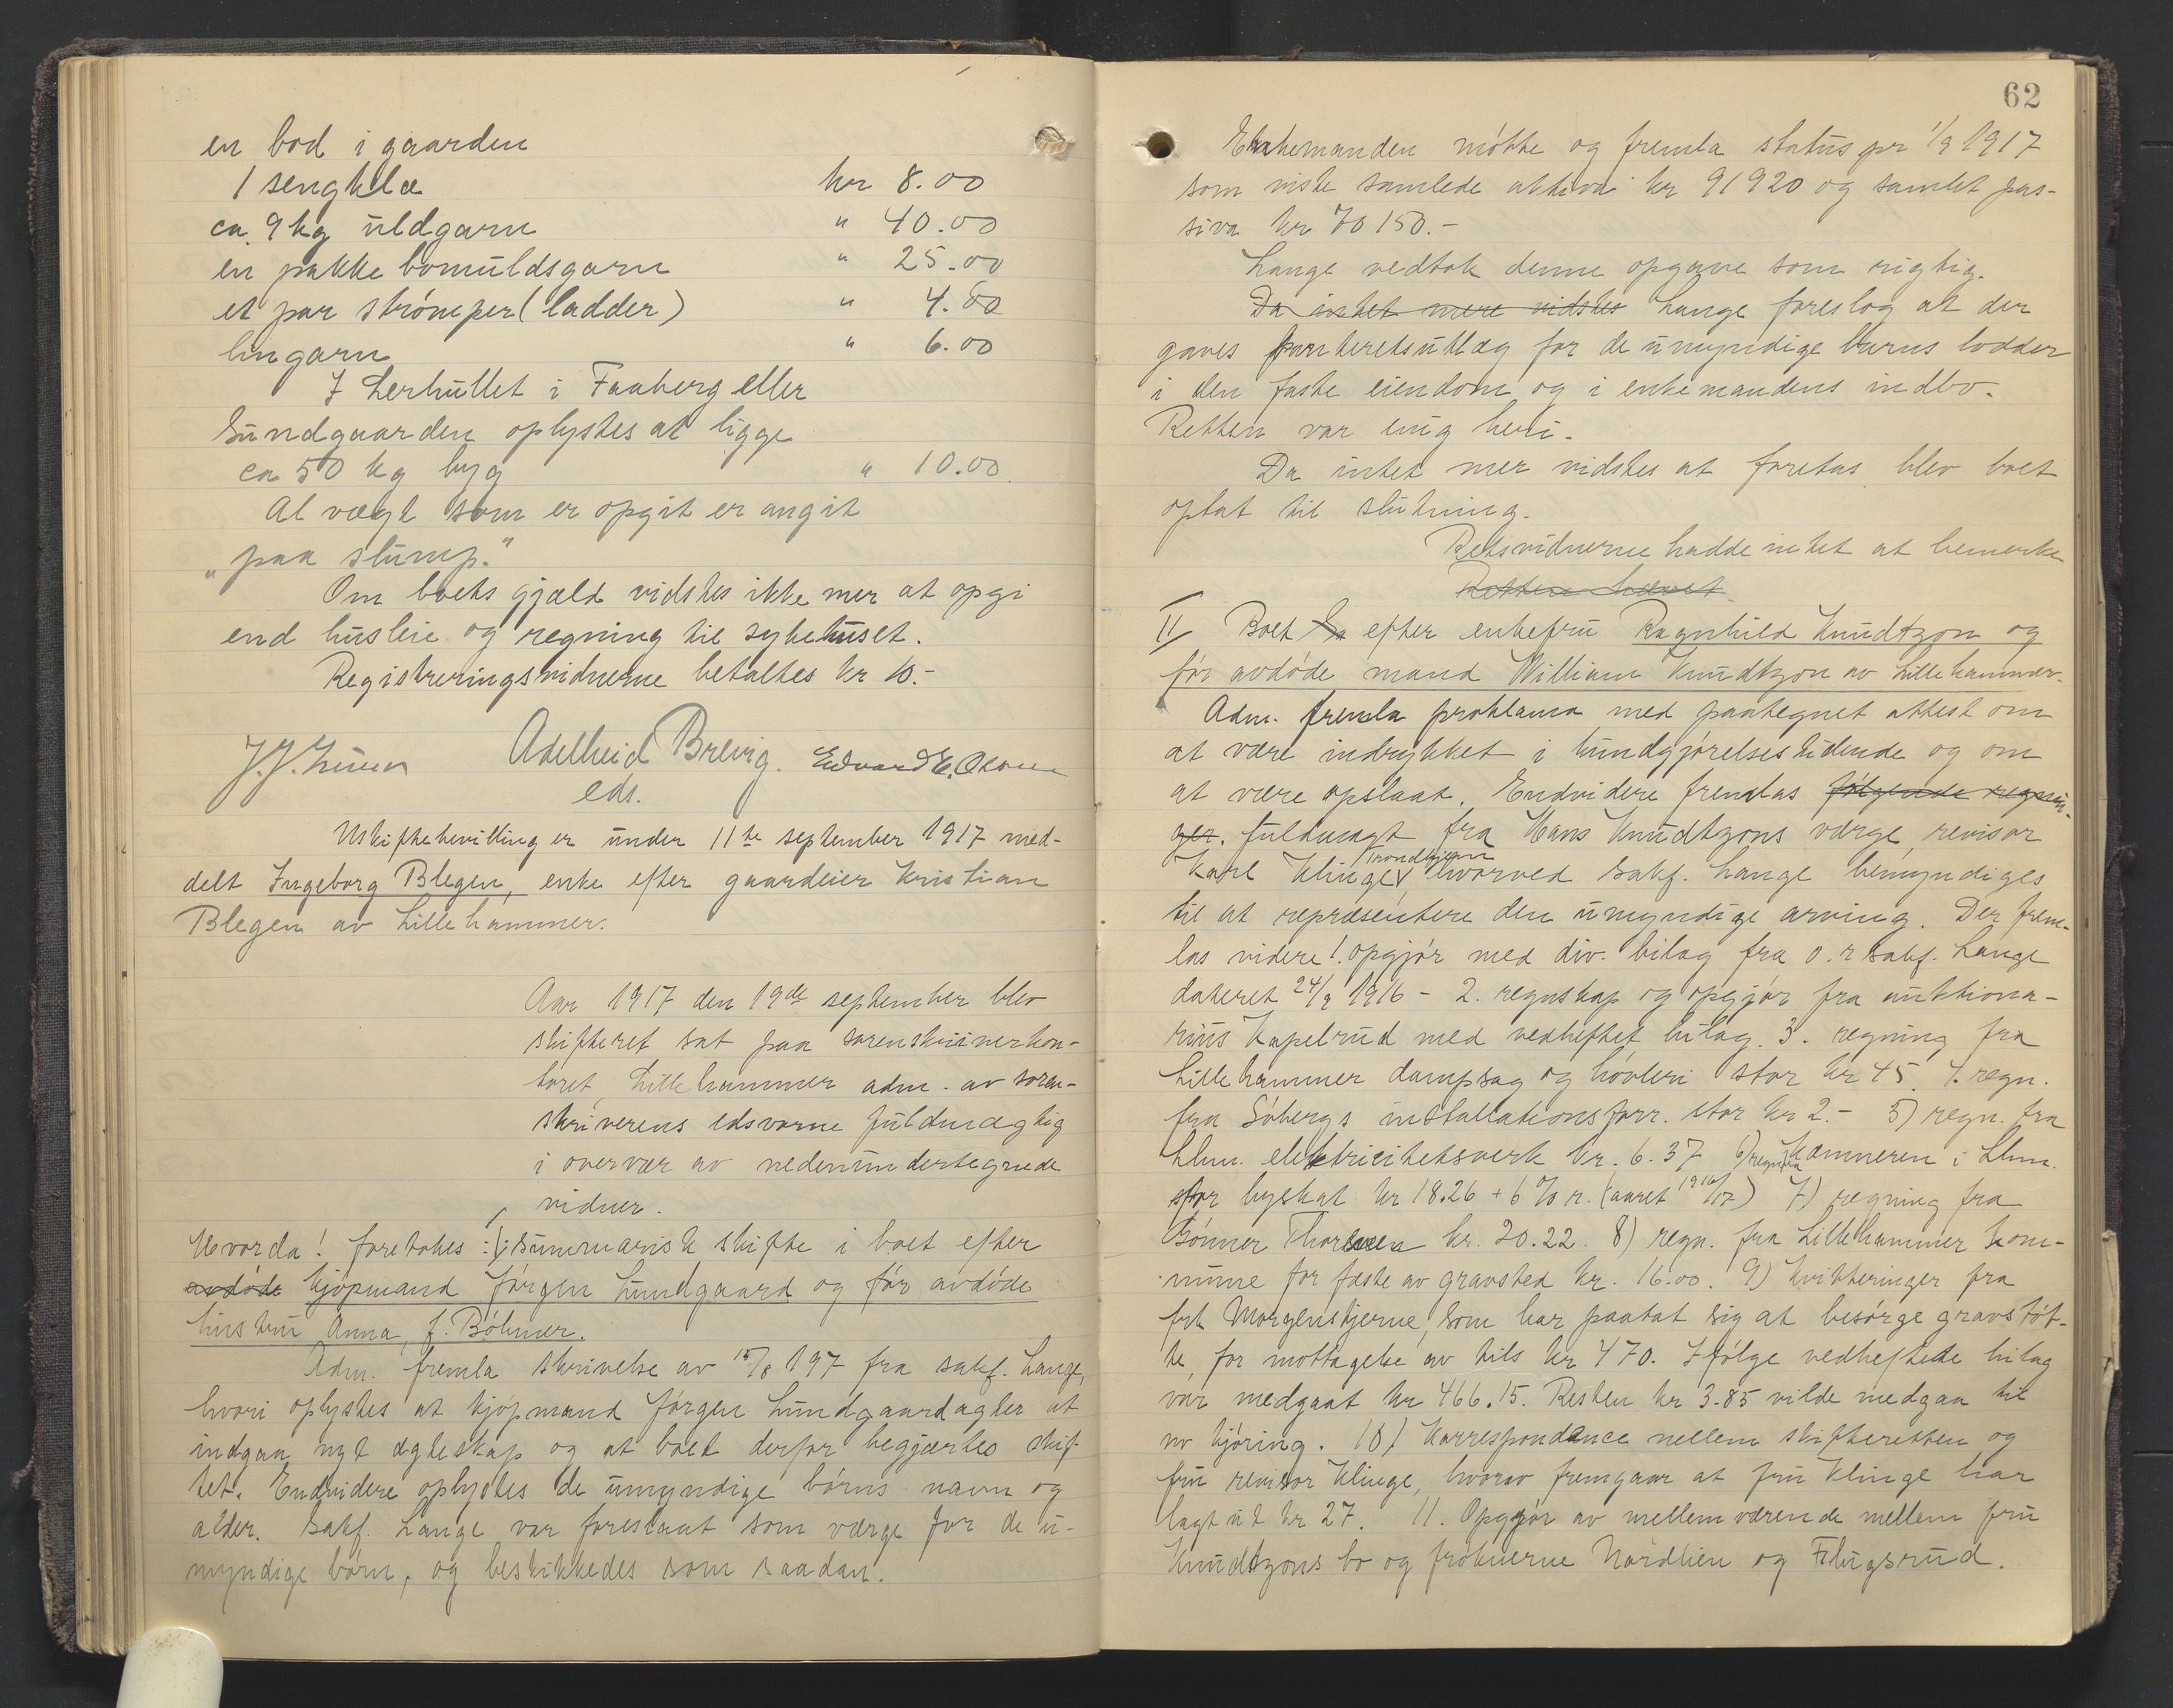 en bod i gaarden
1 sengklæ kr 8.00
ca. 9 kg uldgarn " 40.00
en pakke bomuldsgarn " 25.00
et par strømper (ladder) " 4.00
lingarn " 6.00
I Lerhullet i Faaberg eller
Lundgaarden oplystes at ligge
ca 50 kg byg " 10.00
Al vægt som er opgit er angit
"paa slump."
Om boets gjæld vidstes ikke mer at opgi
end husleie og regning til sykehuset.
Registreringsvidnerne betaltes kr 10.-
Adelheid Brevig. Edvard E. Olsen
eds.
Uskiftebevilling er under 11te september 1917 med-
delt Ingeborg Blegen, enke efter gaardeier Kristian
Blegen av Lillehammer.
Aar 1917 den 19de september blev
skifteret sat paa sorenskriverkon-
toret, Lillehammer adm. av soren-
skriverens edsvorne fuldmægtig
i overvær av nedenundertegnede
vidner.
Hvorda! foretokes: I; summarisk skifte i boet efter
avdøde kjøpmand Jørgen Lundgaard og før avdøde
hustru Anna, f. Bøhmer.
Adm. fremla skrivelse av 15/8 197 fra sakf. Lange,
hvori oplystes at kjøpmand Jørgen Lundgaard agter at
indgaa nyt egteskap og at boet derfor begjærtes skif-
tet. Endvidere oplystes de umyndige børns navn og
alder. Sakf. Lange var foreslaat som værge for de u-
myndige børn, og beskikkedes som saadan.
62
Enkemanden møtte og fremla status pr 1/9 1917
som viste samlede aktiva kr 91920 og samlet pas-
siva kr 70150.-
Lange vedtok denne opgave som rigtig.
Da intet mere vidstes Lange foreslog at der
gaves panteretsutlæg for de umyndige barns lodder
i den faste eiendom og i enkemandens indbo.
Retten var enig heri.
Da intet mer vidstes at foretas blev boet
optat til slutning.
Retsvidnerne hadde intet at bemerke
Retten hævet.
II Boet efter enkefru Ragnhild Knudtzon og
før avdøde mand William Knudtzon av Lillehammer.
Adm. fremla proklama med paategnet attest om
at være indrykket i kundgjørelsestidende og om
at være opslaat. Endvidere fremlas følgende regnin-
ger. fuldmagt fra Hans Knudtzons værge, revisor
Karl Klinge, Trondhjem hvorved sakf. Lange bemyndiges
til at repræsentere den umyndige arving. Der frem-
las videre 1. opgjør med div. bilag fra o.r.sakf. Lange
dateret 24/9 1916 - 2. regnskap og opgjør fra auktiona-
rius Kapelrud med vedheftet bilag. 3. regning fra
Lillehammer dampsag og høvleri stor kr 45. 4. regn.
fra Søbergs installationsforr. stor kr 2.- 5) regn. fra
Lhm. elektricitetsverk kr. 6.37 6) regn fra Kæmneren i Lhm.
stor byskat kr 18.26 + 6 % r. (aaret 1916/17) 7) regning fra
Bønner Thoresen kr. 20.22. 8) regn. fra Lillehammer kom-
mune for fæste av gravsted kr. 16.00. 9) kvitteringer fra
frk Morgenstjerne, som har paatat sig at besørge gravstøt-
te, for mottagelse av tils kr 470. Ifølge vedheftede bilag
var medgaat kr 466.15. Resten kr 3.85 vilde medgaa til
kjøring. 10) Korrespondance mellem skifteretten og
fru revisor Klinge, hvorav fremgaar at fru Klinge har
lagt ut kr 27. 11. Opgjør av mellemværende mellem fru
Knudtzons bo og frøknerne Nordlien og Flugsrud.